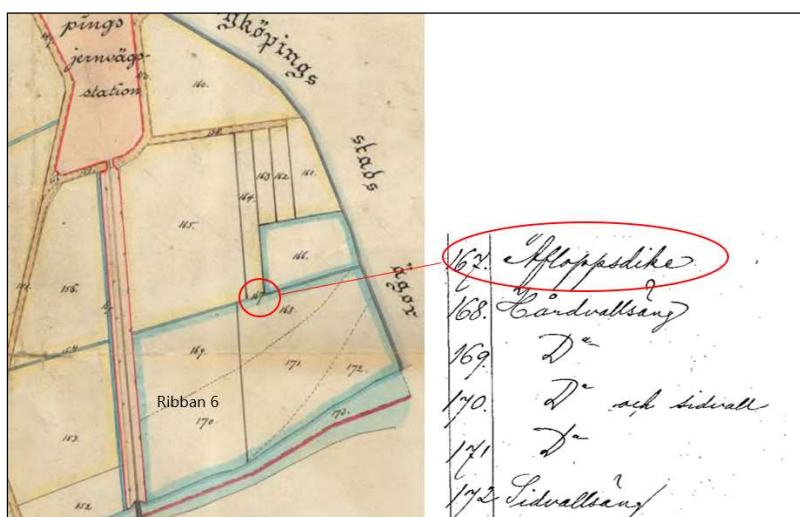 pings
jernvägs-
station
yköpings
stads
ägor
160.
161.
162.
163
164.
165.
166.
167.
168.
169.
170
171.
172.
156.
153.
152
Ribban 6
167. Afloppsdike
168. Hårdvallsäng
169. D°
170. D° och sidvall
171 D°
172 Sidvallsäng